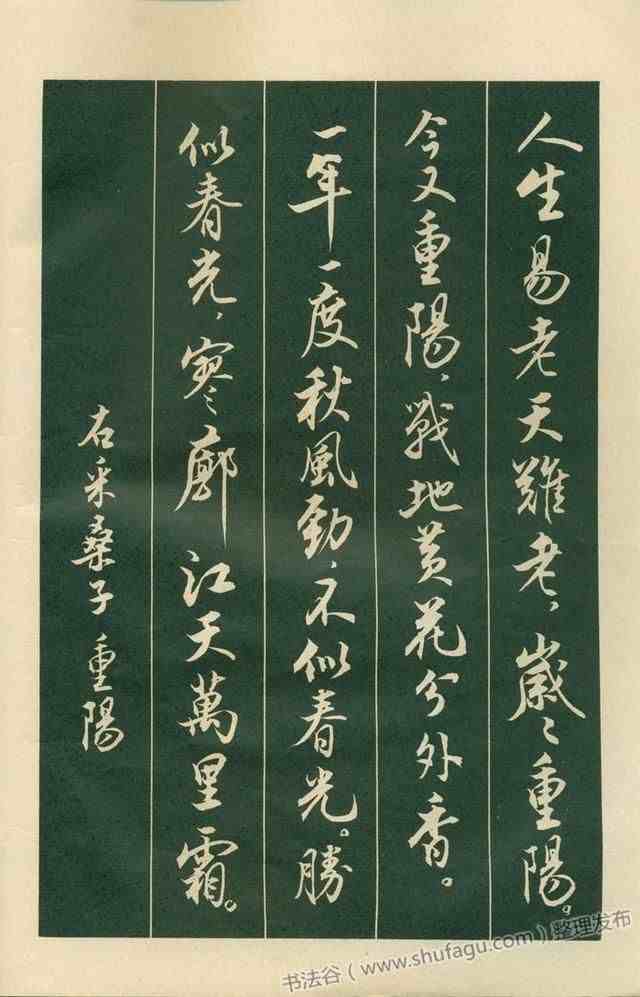 人生易老天難老，歲〻重陽。
今又重陽，戰地黃花分外香。
一年一度秋風勁，不似春光。勝
似春光，寥廓江天萬里霜。
右采桑子 重陽
书法谷（www.shufagu.com）整理发布